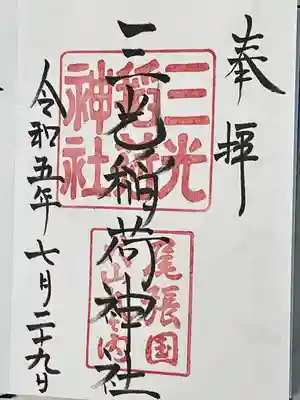 奉拝
三光稲荷神社
三光
稲荷
神社
尾張国
犬山城内
令和五年七月二十九日